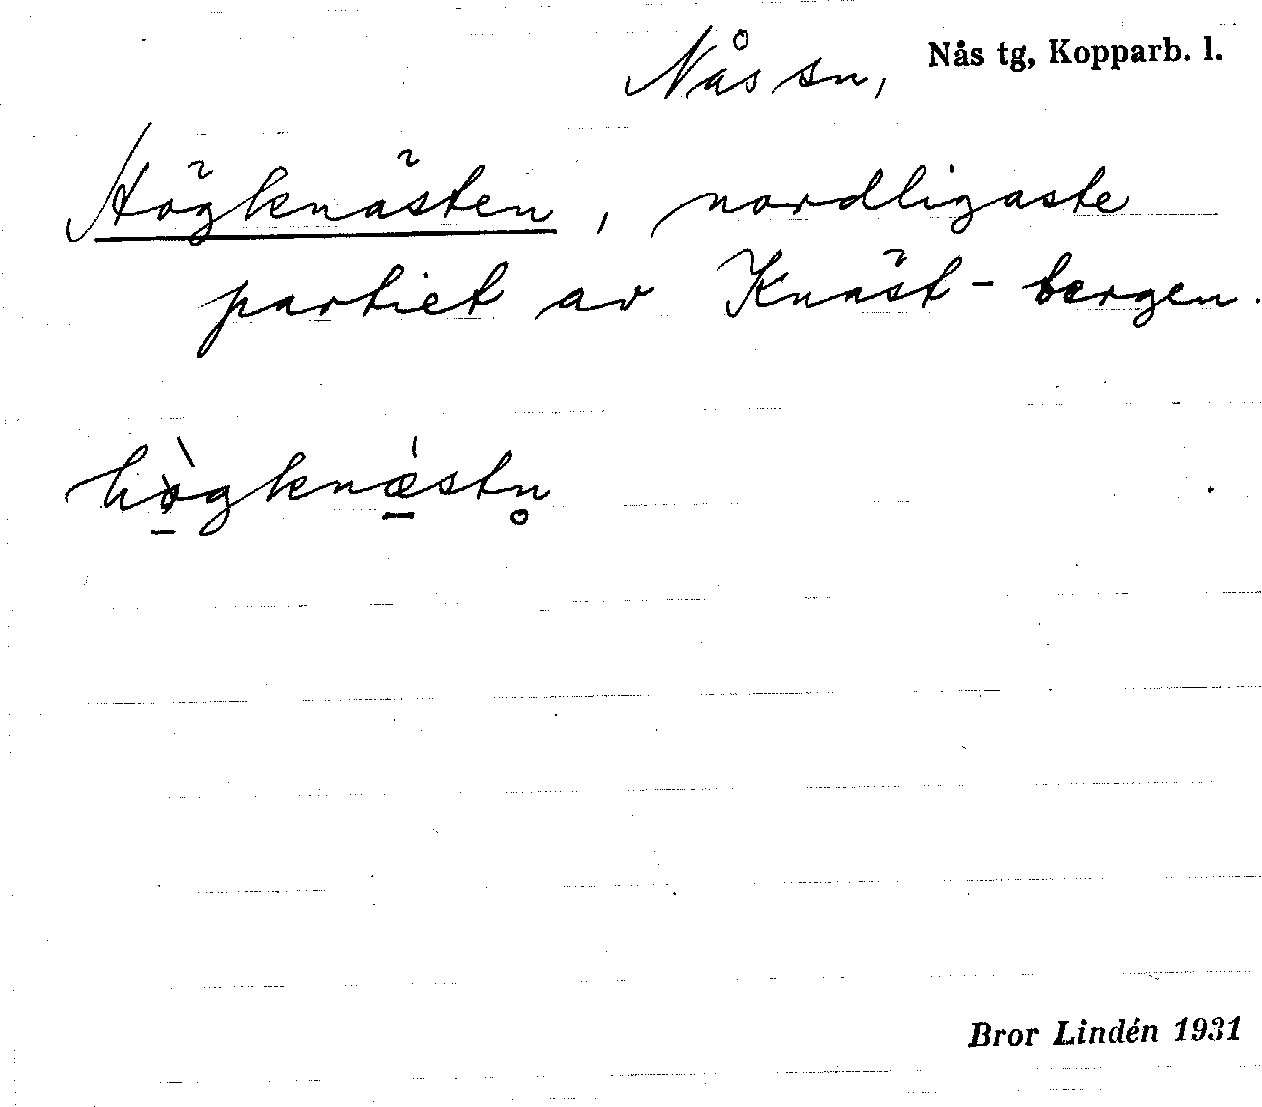 Nås sn, Nås tg, Kopparb. l.
Högknästen, nordligaste
partiet av Knäst-bergen.
hò̱gknǽ̱stn̥
Bror Lindén 1931